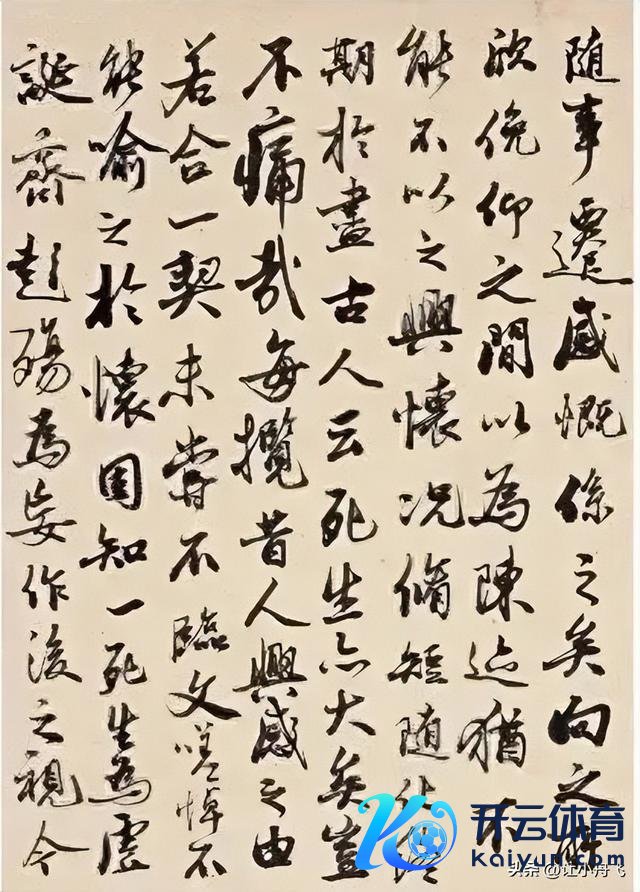 随事遷感慨係之矣向之所
欣俛仰之間以為陳迹猶不
能不以之興懷況脩短随化終
期於盡古人云死生亦大矣豈
不痛哉每攬昔人興感之由
若合一契未嘗不臨文嗟悼不
能喻之於懷固知一死生為虛
誕齊彭殤為妄作後之視今
开云体育
kaiyun.com
头条 @让小丹飞